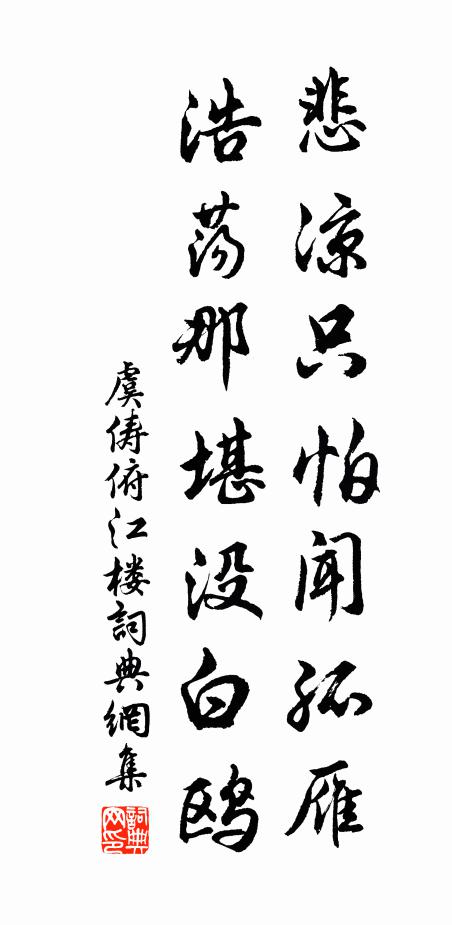 悲凉只怕闻孤雁
浩荡那堪没白鸥
虞俦俯江楼詞典網集
詞典网印